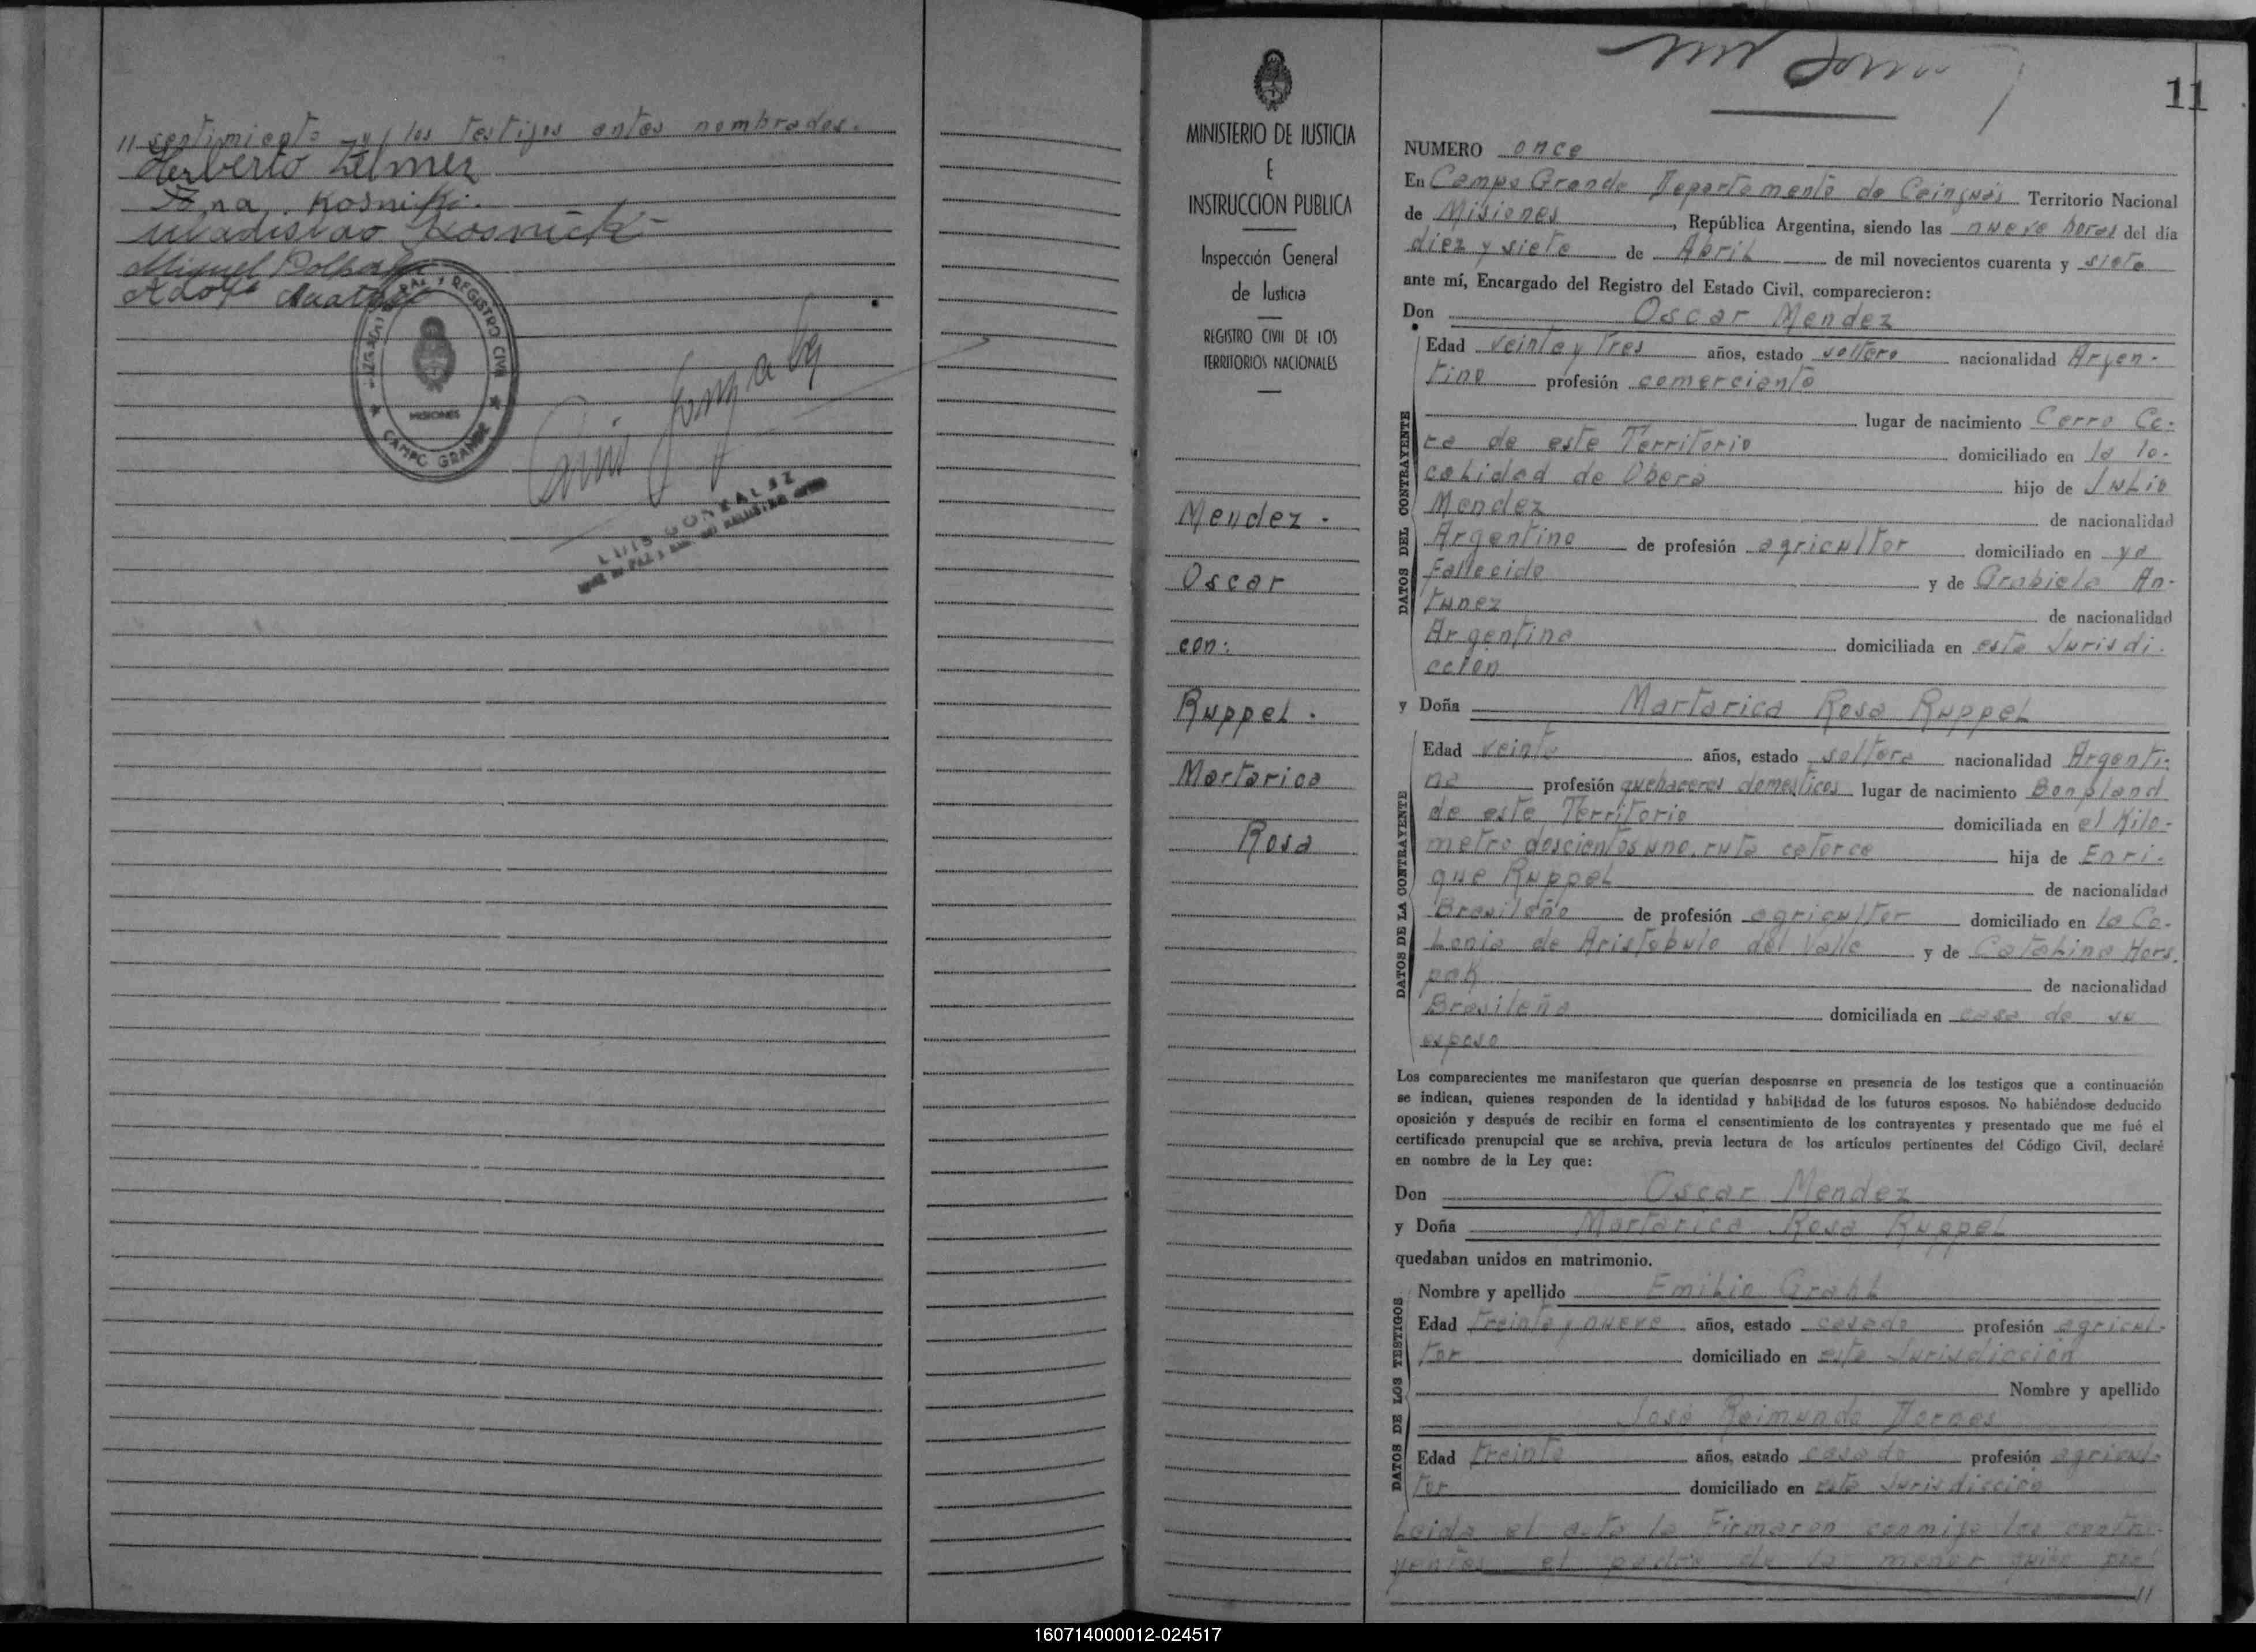 11 sentimiento y los testigos antes nombrados.
Herberto Zilmer
Kosnicki.
Uladislao Kosnicki
Miguel
Adolfo
REGISTRO CIVIL
MISIONES
CAMPO GRANDE
LUIS GONZALEZ
MINISTERIO DE JUSTICIA
E
INSTRUCCION PUBLICA
Inspección General
de Justicia
REGISTRO CIVIL DE LOS
TERRITORIOS NACIONALES
Mendez.
Oscar
con:
Ruppel.
Martarica
Rosa
11
NUMERO once
En Campo Grande Departamento de Cainguás Territorio Nacional
de Misiones, República Argentina, siendo las nueve horas del día
diez y siete de Abril de mil novecientos cuarenta y siete
ante mí, Encargado del Registro del Estado Civil, comparecieron:
Don Oscar Mendez
DATOS DEL CONTRAYENTE
Edad veinte y tres años, estado soltero nacionalidad Argen-
tino profesión comerciante
lugar de nacimiento Cerro Co-
ra de este Territorio domiciliado en la lo-
calidad de Oberá hijo de Julio
Mendez de nacionalidad
Argentino de profesión agricultor domiciliado en ya
Fallecido y de Grabiela An-
tunez de nacionalidad
Argentina domiciliada en esta Jurisdi-
cción
y Doña Martarica Rosa Ruppel
DATOS DE LA CONTRAYENTE
Edad veinte años, estado soltera nacionalidad Argenti-
na profesión quehaceres domesticos lugar de nacimiento Bonpland
de este Territorio domiciliada en el Kilo-
metro doscientos uno, ruta catorce hija de Enri-
que Ruppel de nacionalidad
Brasileño de profesión agricultor domiciliado en la Co-
lonia de Aristobulo del Valle y de Catalina Hors-
pak de nacionalidad
Brasileña domiciliada en casa de su
esposo
Los comparecientes me manifestaron que querían desposarse en presencia de los testigos que a continuación
se indican, quienes responden de la identidad y habilidad de los futuros esposos. No habiéndose deducido
oposición y después de recibir en forma el consentimiento de los contrayentes y presentado que me fué el
certificado prenupcial que se archiva, previa lectura de los artículos pertinentes del Código Civil, declaré
en nombre de la Ley que:
Don Oscar Mendez
y Doña Martarica Rosa Ruppel
quedaban unidos en matrimonio.
DATOS DE LOS TESTIGOS
Nombre y apellido Emilio Grahl
Edad treinta y nueve años, estado casado profesión agricul-
tor domiciliado en esta Jurisdicción
Nombre y apellido
José Raimundo Dornes
Edad treinta años, estado casado profesión agricul-
tor domiciliado en esta Jurisdicción
Leida el acta la Firmaron conmigo los contra-
yentes el padre de la menor quien
11
160714000012-024517